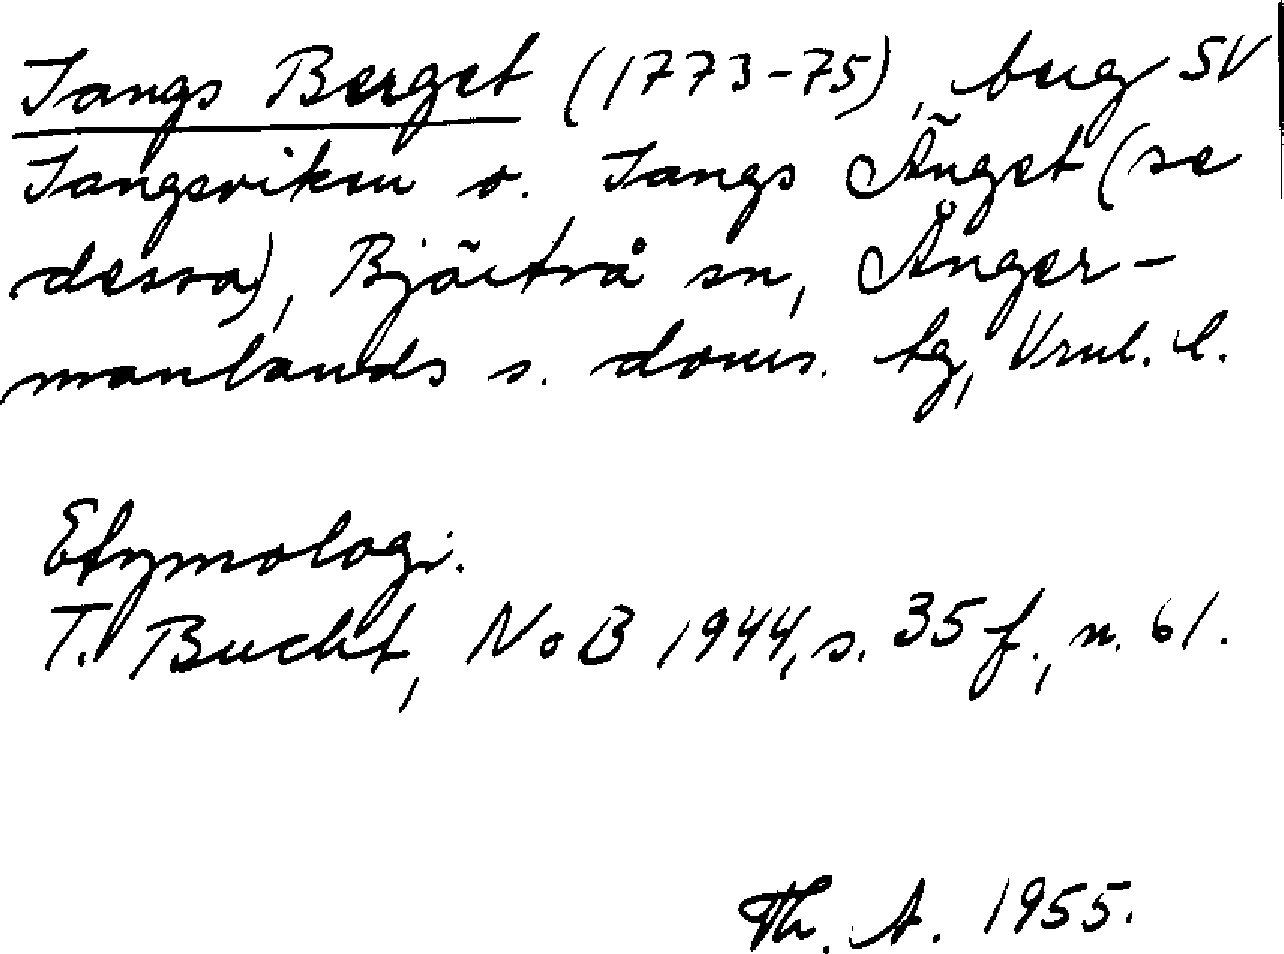 Tangs Berget (1773-75), berg SV
Tangsviken o. Tangs Änget (se
dessa), Bjärtrå sn, Ånger-
manlands s. doms. tg, Vrnl. l.
Etymologi.
T. Bucht, NoB 1944, s. 35 f., n. 61.
Th. A. 1955.